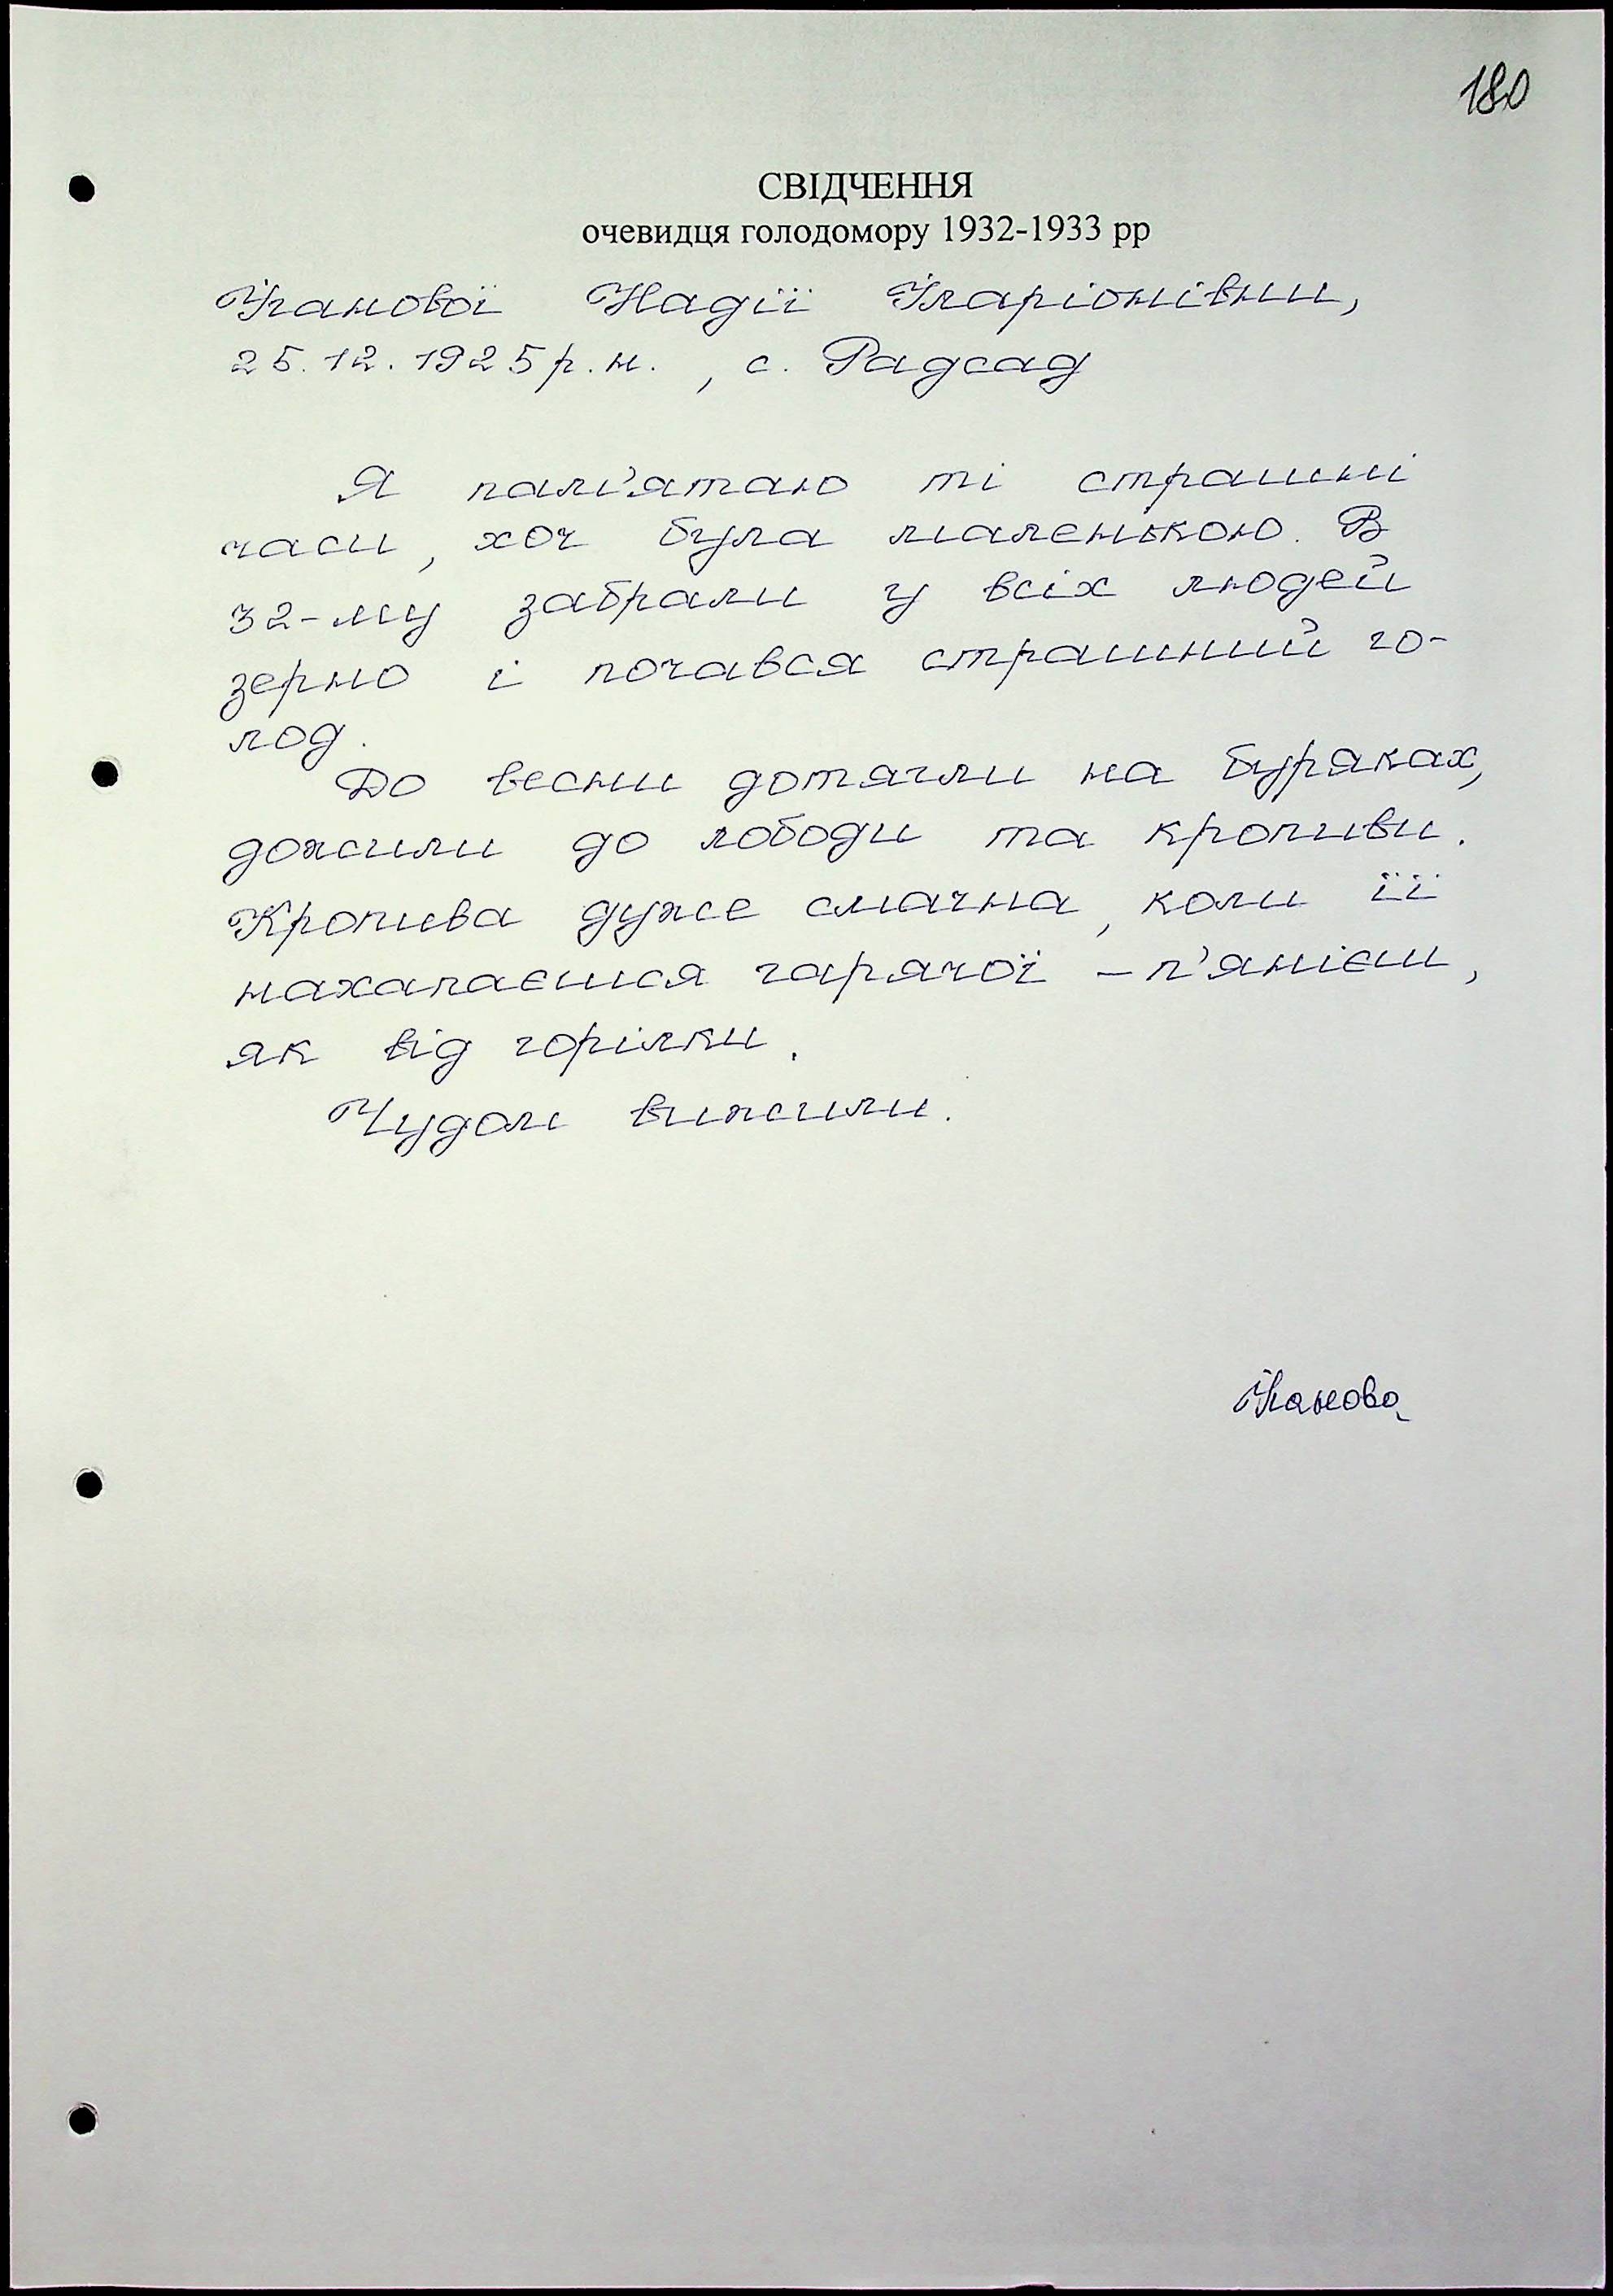 180
СВІДЧЕННЯ
очевидця голодомору 1932-1933 рр
Надії Іларіонівни,
25.12.1925 р.н., с. Радсад
Я пам'ятаю ті страшні
часи, хоч була маленькою. В
32-му забрали у всіх людей
зерно і почався страшний го-
лод.
До весни дотягли на буряках,
дожили до лободи та кропиви.
Кропива дуже смачна, коли її
нахапаєшся гарячої – п'янієш,
як від горілки.
Чудом вижили.